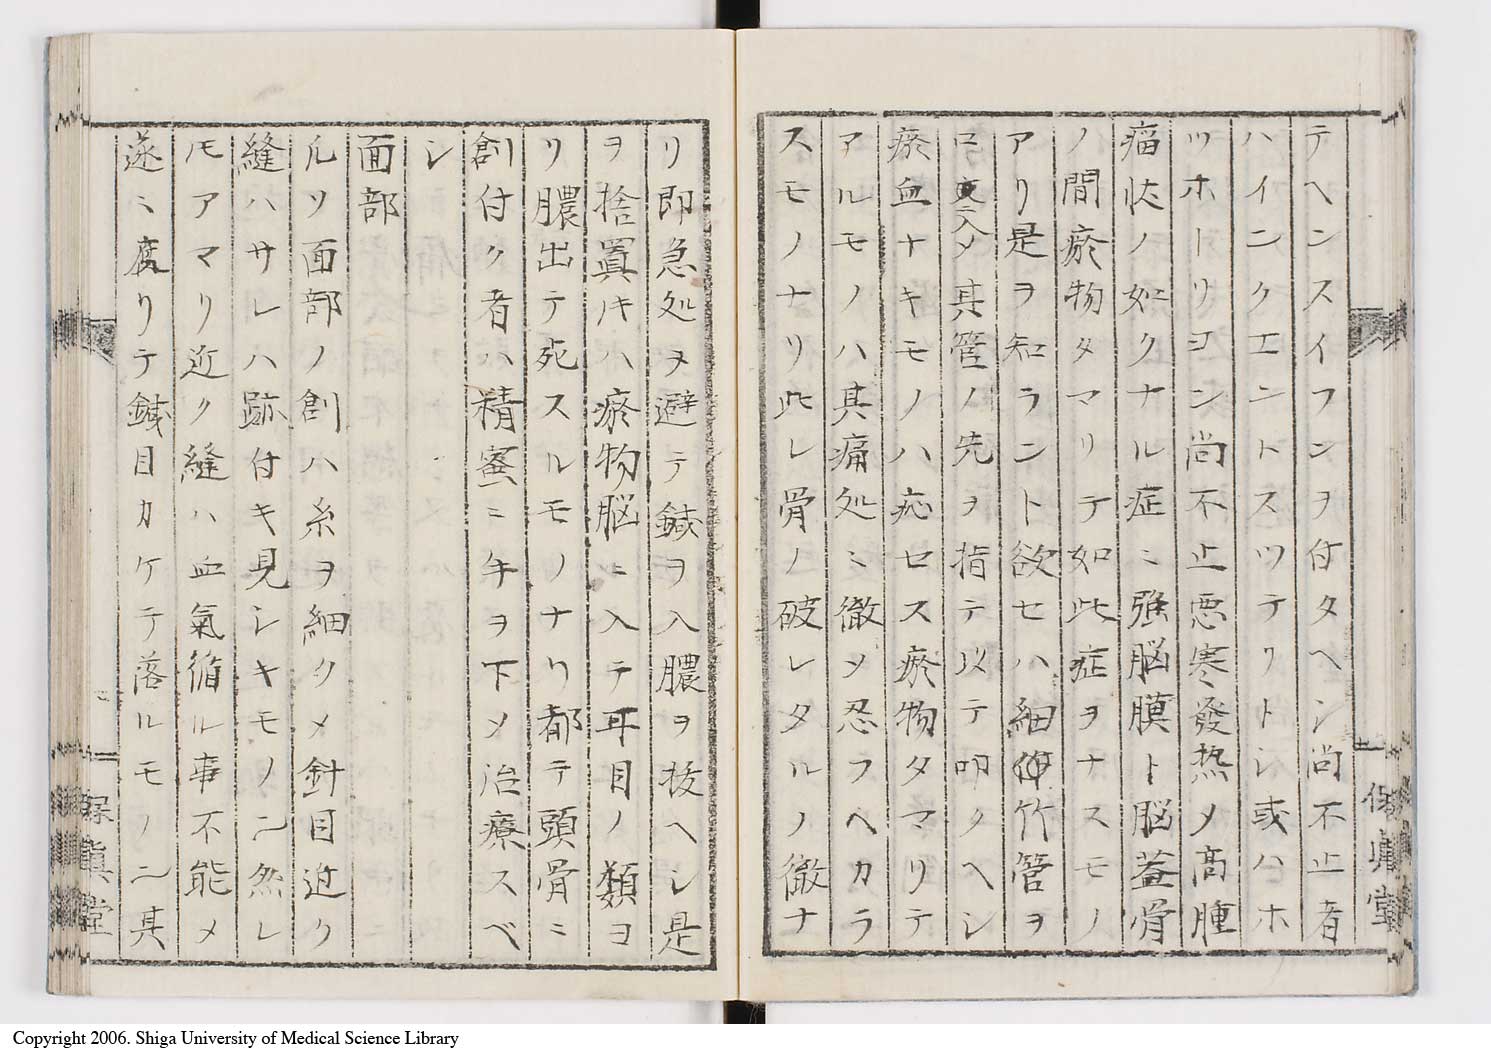 テヘンスイフンヲ付タヘン尚不止者
ハインクエントスツテリトシ或ハホ
ツホートリヨン尚不止悪寒發热メ高腫
痛忕ノ如クナル症ミ強脳膜ト脳蓋骨
ノ間瘀物タマリテ如此症ヲナスモノ
アリ是ヲ知ラント欲セハ細伸竹管ヲ
口入メ其管ノ先ヲ指テ以テ叩クヘシ
瘀血ナキモノハ応セス瘀物タマリテ
アルモノハ其痛処ミ徹メ忍フヘカラ
スモノナリ此レ骨ノ破レタルノ徴ナ
リ即急処ヲ避テ鍼ヲ入膿ヲ抜ヘシ是
ヲ捨置キハ瘀物脳ニ入テ耳目ノ類ヨ
リ膿出テ死スルモノナリ都テ頭骨ミ
創付ク者ハ精蜜ニ手ヲ下メ治療スベ
シ
面部
凡ソ面部ノ創ハ糸ヲ細クメ針目近ク
縫ハサレハ跡付キ見シキモノ二然レ
𪜈アマリ近ク縫ハ血氣循ル事不能メ
遂ミ腐リテ鍼目カケテ落ルモノ二其
保眞堂